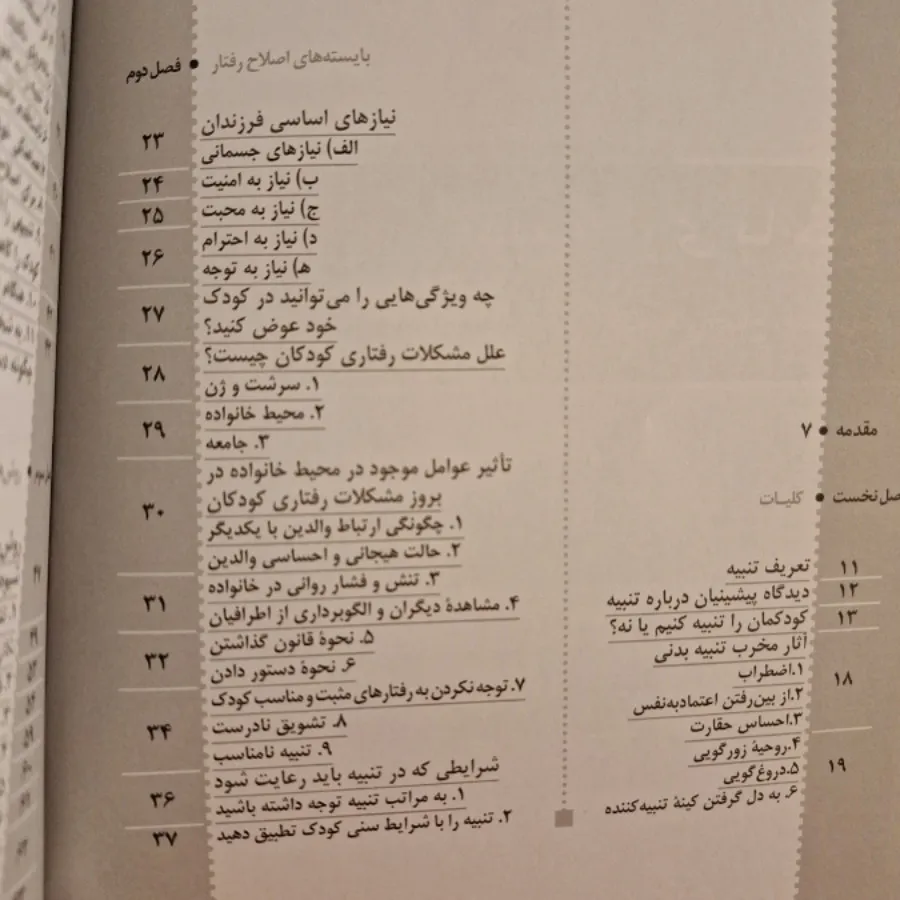 مقدمه • ۷
نخست • کلیات
تعریف تنبیه ۱۱
دیدگاه پیشینیان درباره تنبیه ۱۲
کودکمان را تنبیه کنیم یا نه؟ ۱۳
آثار مخرب تنبیه بدنی
۱.اضطراب ۱۸
۲.از بین‌رفتن اعتمادبه‌نفس
۳.احساس حقارت
۴.روحیهٔ زورگویی
۵.دروغ‌گویی ۱۹
۶. به دل گرفتن کینهٔ تنبیه‌کننده
بایسته‌های اصلاح رفتار • فصل دوم
نیازهای اساسی فرزندان
الف) نیازهای جسمانی ۲۳
ب) نیاز به امنیت ۲۴
ج) نیاز به محبت ۲۵
د) نیاز به احترام
ه) نیاز به توجه ۲۶
چه ویژگی‌هایی را می‌توانید در کودک
خود عوض کنید؟ ۲۷
علل مشکلات رفتاری کودکان چیست؟
۱. سرشت و ژن ۲۸
۲. محیط خانواده
۳. جامعه ۲۹
تأثیر عوامل موجود در محیط خانواده در
بروز مشکلات رفتاری کودکان
۱. چگونگی ارتباط والدین با یکدیگر ۳۰
۲. حالت هیجانی و احساسی والدین
۳. تنش و فشار روانی در خانواده
۴. مشاهدهٔ دیگران و الگوبرداری از اطرافیان ۳۱
۵. نحوهٔ قانون گذاشتن
۶. نحوهٔ دستور دادن ۳۲
۷. توجه نکردن به رفتارهای مثبت و مناسب کودک
۸. تشویق نادرست ۳۴
۹. تنبیه نامناسب
شرایطی که در تنبیه باید رعایت شود
۱. به مراتب تنبیه توجه داشته باشید ۳۶
۲. تنبیه را با شرایط سنی کودک تطبیق دهید ۳۷